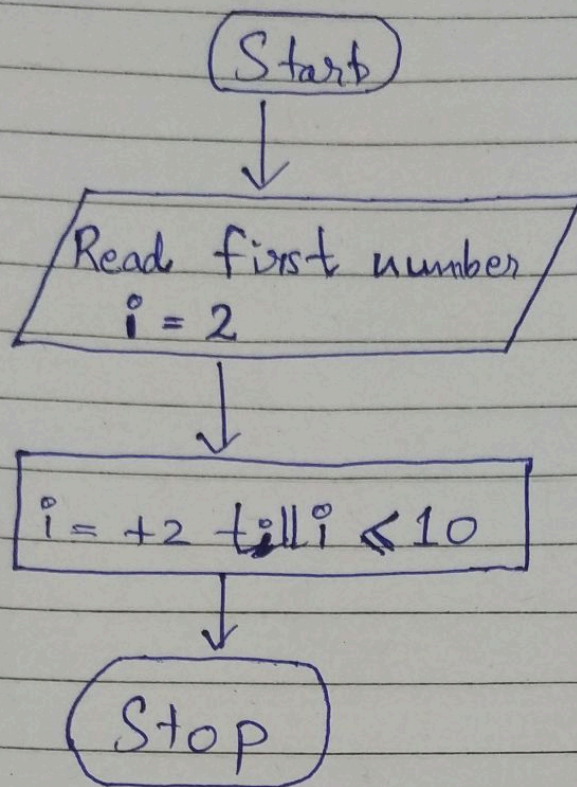 Start
Read first number
i = 2
i = +2 till i ≤ 10
Stop